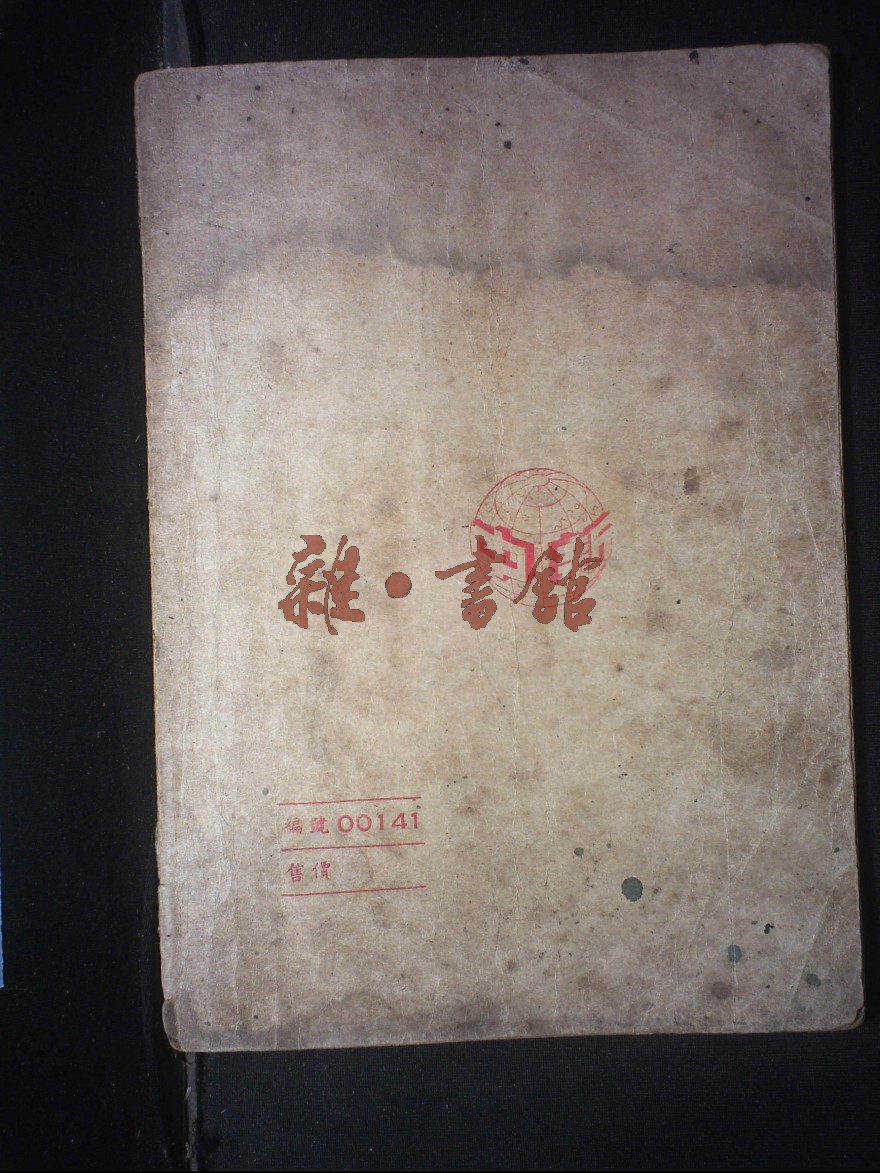 雜·書館
編號 00141
售價